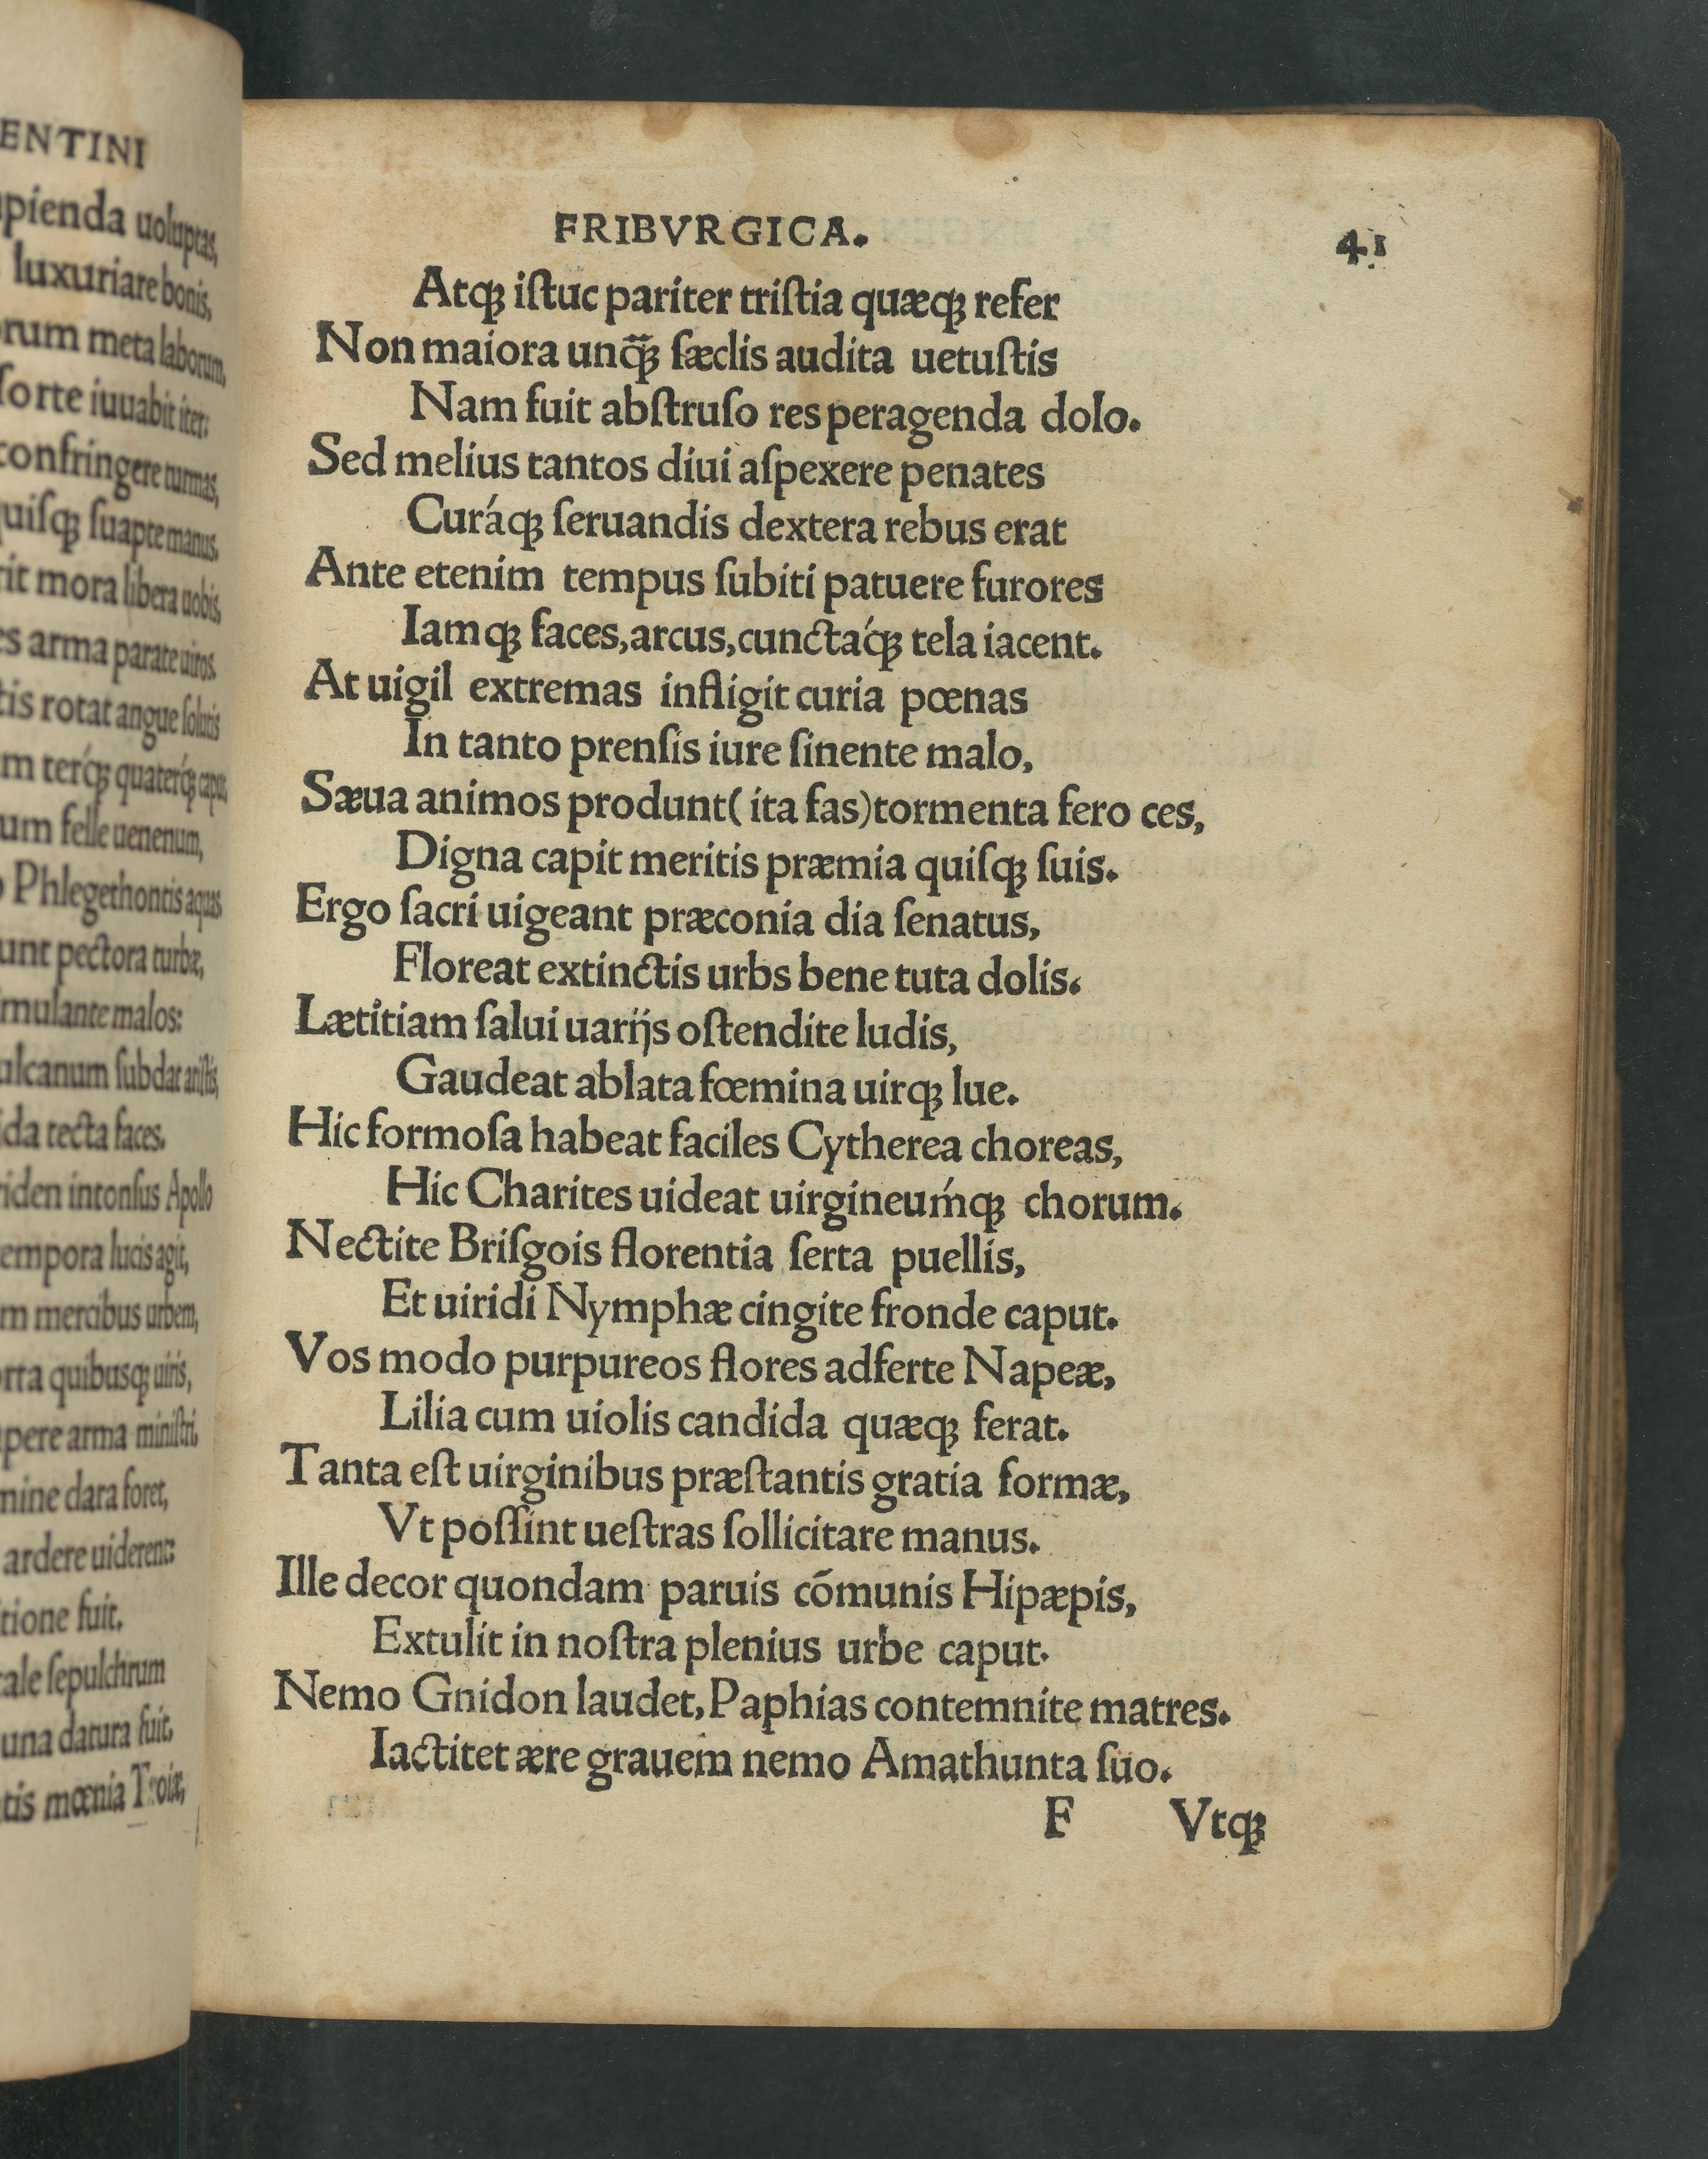 ENTINI
pienda uoluptas,
luxuriare bonis,
orum meta laborum,
sorte iuuabit iter:
confringere turmas,
quisqꝫ suapte manus.
rit mora libera uobis,
es arma parate uiros.
tis rotat angue solutis
m terq́ꝫ quaterq́ꝫ caput,
um felle uenenum,
o Phlegethontis aquas
unt pectora turbæ,
imulante malos:
ulcanum subdat aristis,
ida tecta faces.
riden intonsus Apollo
tempora lucis agit,
m mercibus urbem,
orta quibusqꝫ uiris,
pere arma ministri,
mine clara foret,
ardere uiderent:
tione fuit.
tale sepulchrum
una datura fuit,
tis mœnia Troiæ,
FRIBVRGICA. 41
Atqꝫ iſtuc pariter triſtia quæqꝫ refer
Non maiora unq̃ꝫ ſæclis audita uetuſtis
Nam fuit abſtruſo res peragenda dolo.
Sed melius tantos diui aſpexere penates
Curáqꝫ ſeruandis dextera rebus erat
Ante etenim tempus ſubiti patuere furores
Iamqꝫ faces, arcus, cunctáqꝫ tela iacent.
At uigil extremas infligit curia pœnas
In tanto prenſis iure ſinente malo,
Sæua animos produnt( ita fas)tormenta fero ces,
Digna capit meritis præmia quiſqꝫ ſuis.
Ergo ſacri uigeant præconia dia ſenatus,
Floreat extinctis urbs bene tuta dolis.
Lætitiam ſalui uarijs oſtendite ludis,
Gaudeat ablata fœmina uirqꝫ lue.
Hic formoſa habeat faciles Cytherea choreas,
Hic Charites uideat uirgineuḿqꝫ chorum.
Nectite Briſgois florentia ſerta puellis,
Et uiridi Nymphæ cingite fronde caput.
Vos modo purpureos flores adferte Napeæ,
Lilia cum uiolis candida quæqꝫ ferat.
Tanta eſt uirginibus præſtantis gratia formæ,
Vt poſſint ueſtras ſollicitare manus.
Ille decor quondam paruis cõmunis Hipæpis,
Extulit in noſtra plenius urbe caput.
Nemo Gnidon laudet, Paphias contemnite matres.
Iactitet ære grauem nemo Amathunta ſuo.
F Vtqꝫ